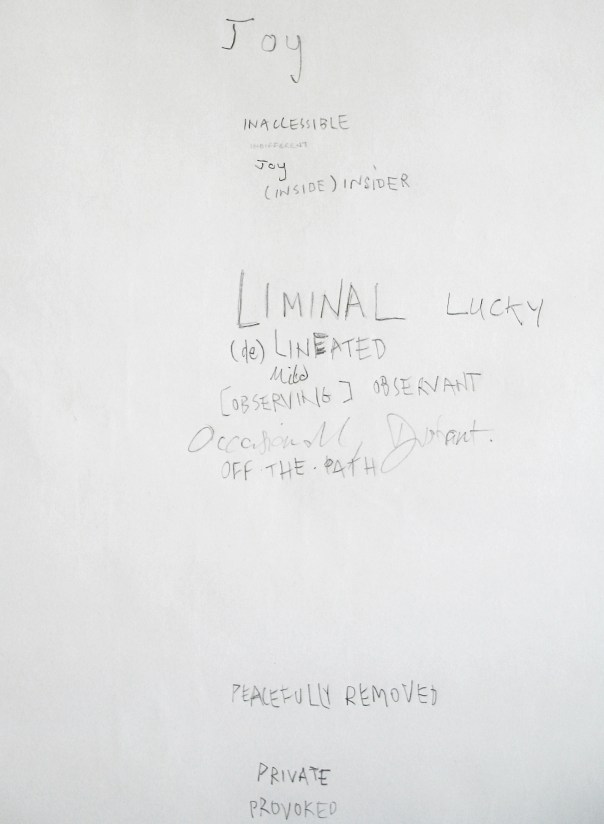 Joy
INACCESSIBLE
INDIFFERENT
Joy
(INSIDE) INSIDER
LIMINAL LUCKY
(de) LINEATED
Mild
[OBSERVING] OBSERVANT
Occasional, Distant.
OFF · THE · PATH
PEACEFULLY REMOVED
PRIVATE
PROVOKED